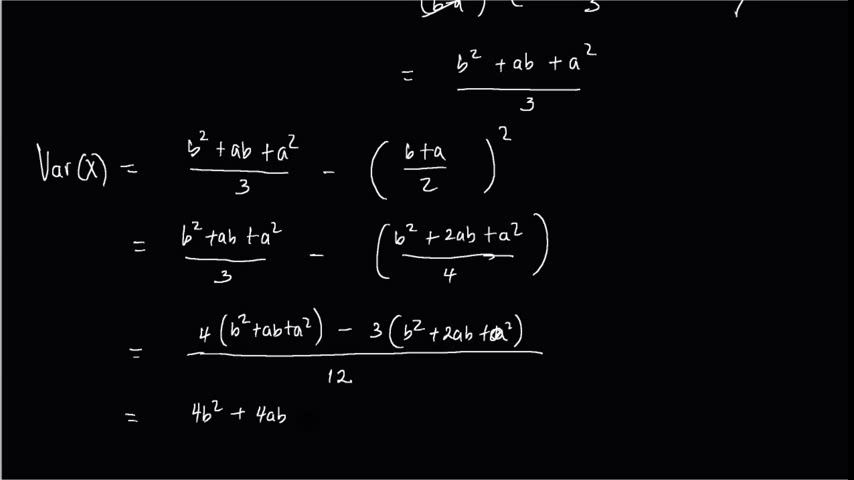 = b² + ab + a² / 3
Var(X) = b² + ab + a² / 3 - (b+a / 2)²
= b² + ab + a² / 3 - (b² + 2ab + a² / 4)
= 4(b² + ab + a²) - 3(b² + 2ab + a²) / 12
= 4b² + 4ab